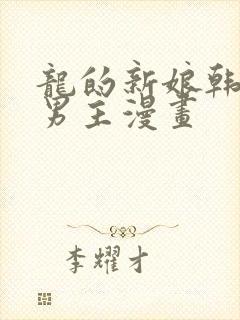 龍的新娘韩
男主漫畫
李耀才